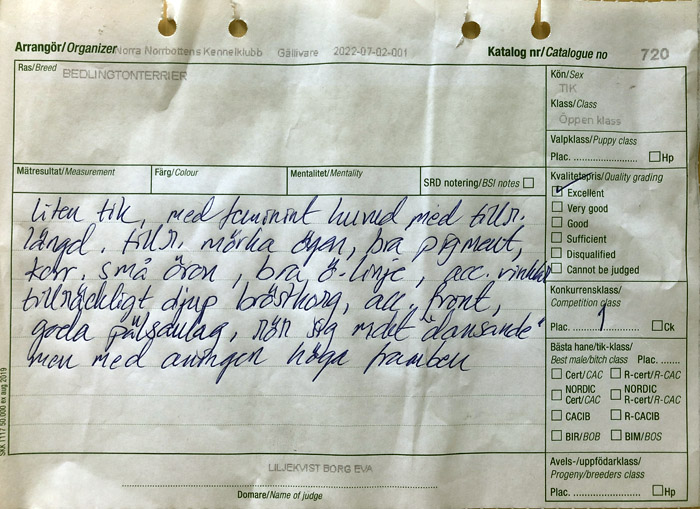 Arrangör/Organizer Norra Norrbottens Kennelklubb Gällivare 2022-07-02-001 Katalog nr/Catalogue no 720
Ras/Breed BEDLINGTONTERRIER
Kön/Sex
TIK
Klass/Class
Öppen klass
Valpklass/Puppy class
Plac. Hp
Mätresultat/Measurement Färg/Colour Mentalitet/Mentality SRD notering/BSI notes
Kvalitetspris/Quality grading
Excellent
Very good
Good
Sufficient
Disqualified
Cannot be judged
liten tik, med feminint huvud med tillr.
längd. tillr. mörka ögon, bra pigment,
korr. små öron, bra ö-linje, acc. vinklar
tillräckligt djup bröstkorg, acc. front,
goda pälsanlag, rör sig "dansande"
men med aningen höga framben
Konkurrensklass/
Competition class
Plac. 1 Ck
Bästa hane/tik-klass/
Best male/bitch class Plac.
Cert/CAC R-cert/R-CAC
NORDIC Cert/CAC NORDIC R-cert/R-CAC
CACIB R-CACIB
BIR/BOB BIM/BOS
Avels-/uppfödarklass/
Progeny/breeders class
Plac. Hp
LILJEKVIST BORG EVA
Domare/Name of judge
SKK 1117 50.000 ex aug 2019